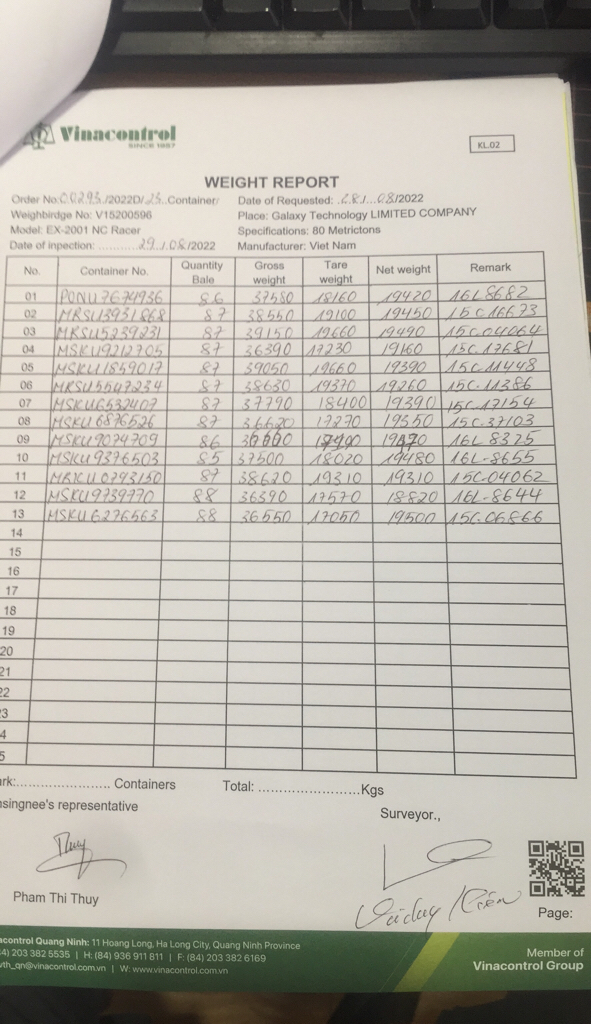 Vinacontrol
SINCE 1957
KL.02
WEIGHT REPORT
Order No: 00293./2022D/23..Container/ Date of Requested: .28./...08/2022
Weighbirdge No: V15200596 Place: Galaxy Technology LIMITED COMPANY
Model: EX-2001 NC Racer Specifications: 80 Metrictons
Date of inpection: ............29../08/2022 Manufacturer: Viet Nam
No. Container No. Quantity Bale Gross weight Tare weight Net weight Remark
01 PONU7674936 86 37580 18160 19420 16L8682
02 MRSU3931868 87 38550 19100 19450 15C16673
03 MRSU5239231 87 39150 19660 19490 15C.04064
04 MSKU9212705 87 36390 17230 19160 15C.17681
05 MSKU1859017 87 39050 19660 19390 15C.11448
06 MRSU5547234 87 38630 19370 19260 15C.11386
07 MSKU6532407 87 37790 18400 19390 15C.17154
08 MSKU6876526 87 36620 17270 19350 15C.37103
09 MSKU9074709 86 16L8325
10 MSKU9376503 85 37500 18020 19480 16L-8655
11 MRKU0793150 87 38620 19310 19310 15C-04062
12 MSKU9739770 88 36390 17570 18820 16L-8644
13 MSKU6276563 88 36550 17050 19500 15C.06866
14
15
16
17
18
19
20
21
22
23
4
5
rk:....................... Containers Total: ........................Kgs
nsingnee's representative
Surveyor.,
Thuy
Pham Thi Thuy
Page:
acontrol Quang Ninh: 11 Hoang Long, Ha Long City, Quang Ninh Province
4) 203 382 5535 | H: (84) 936 911 811 | F: (84) 203 382 6169
vth_qn@vinacontrol.com.vn | W: www.vinacontrol.com.vn
Member of
Vinacontrol Group